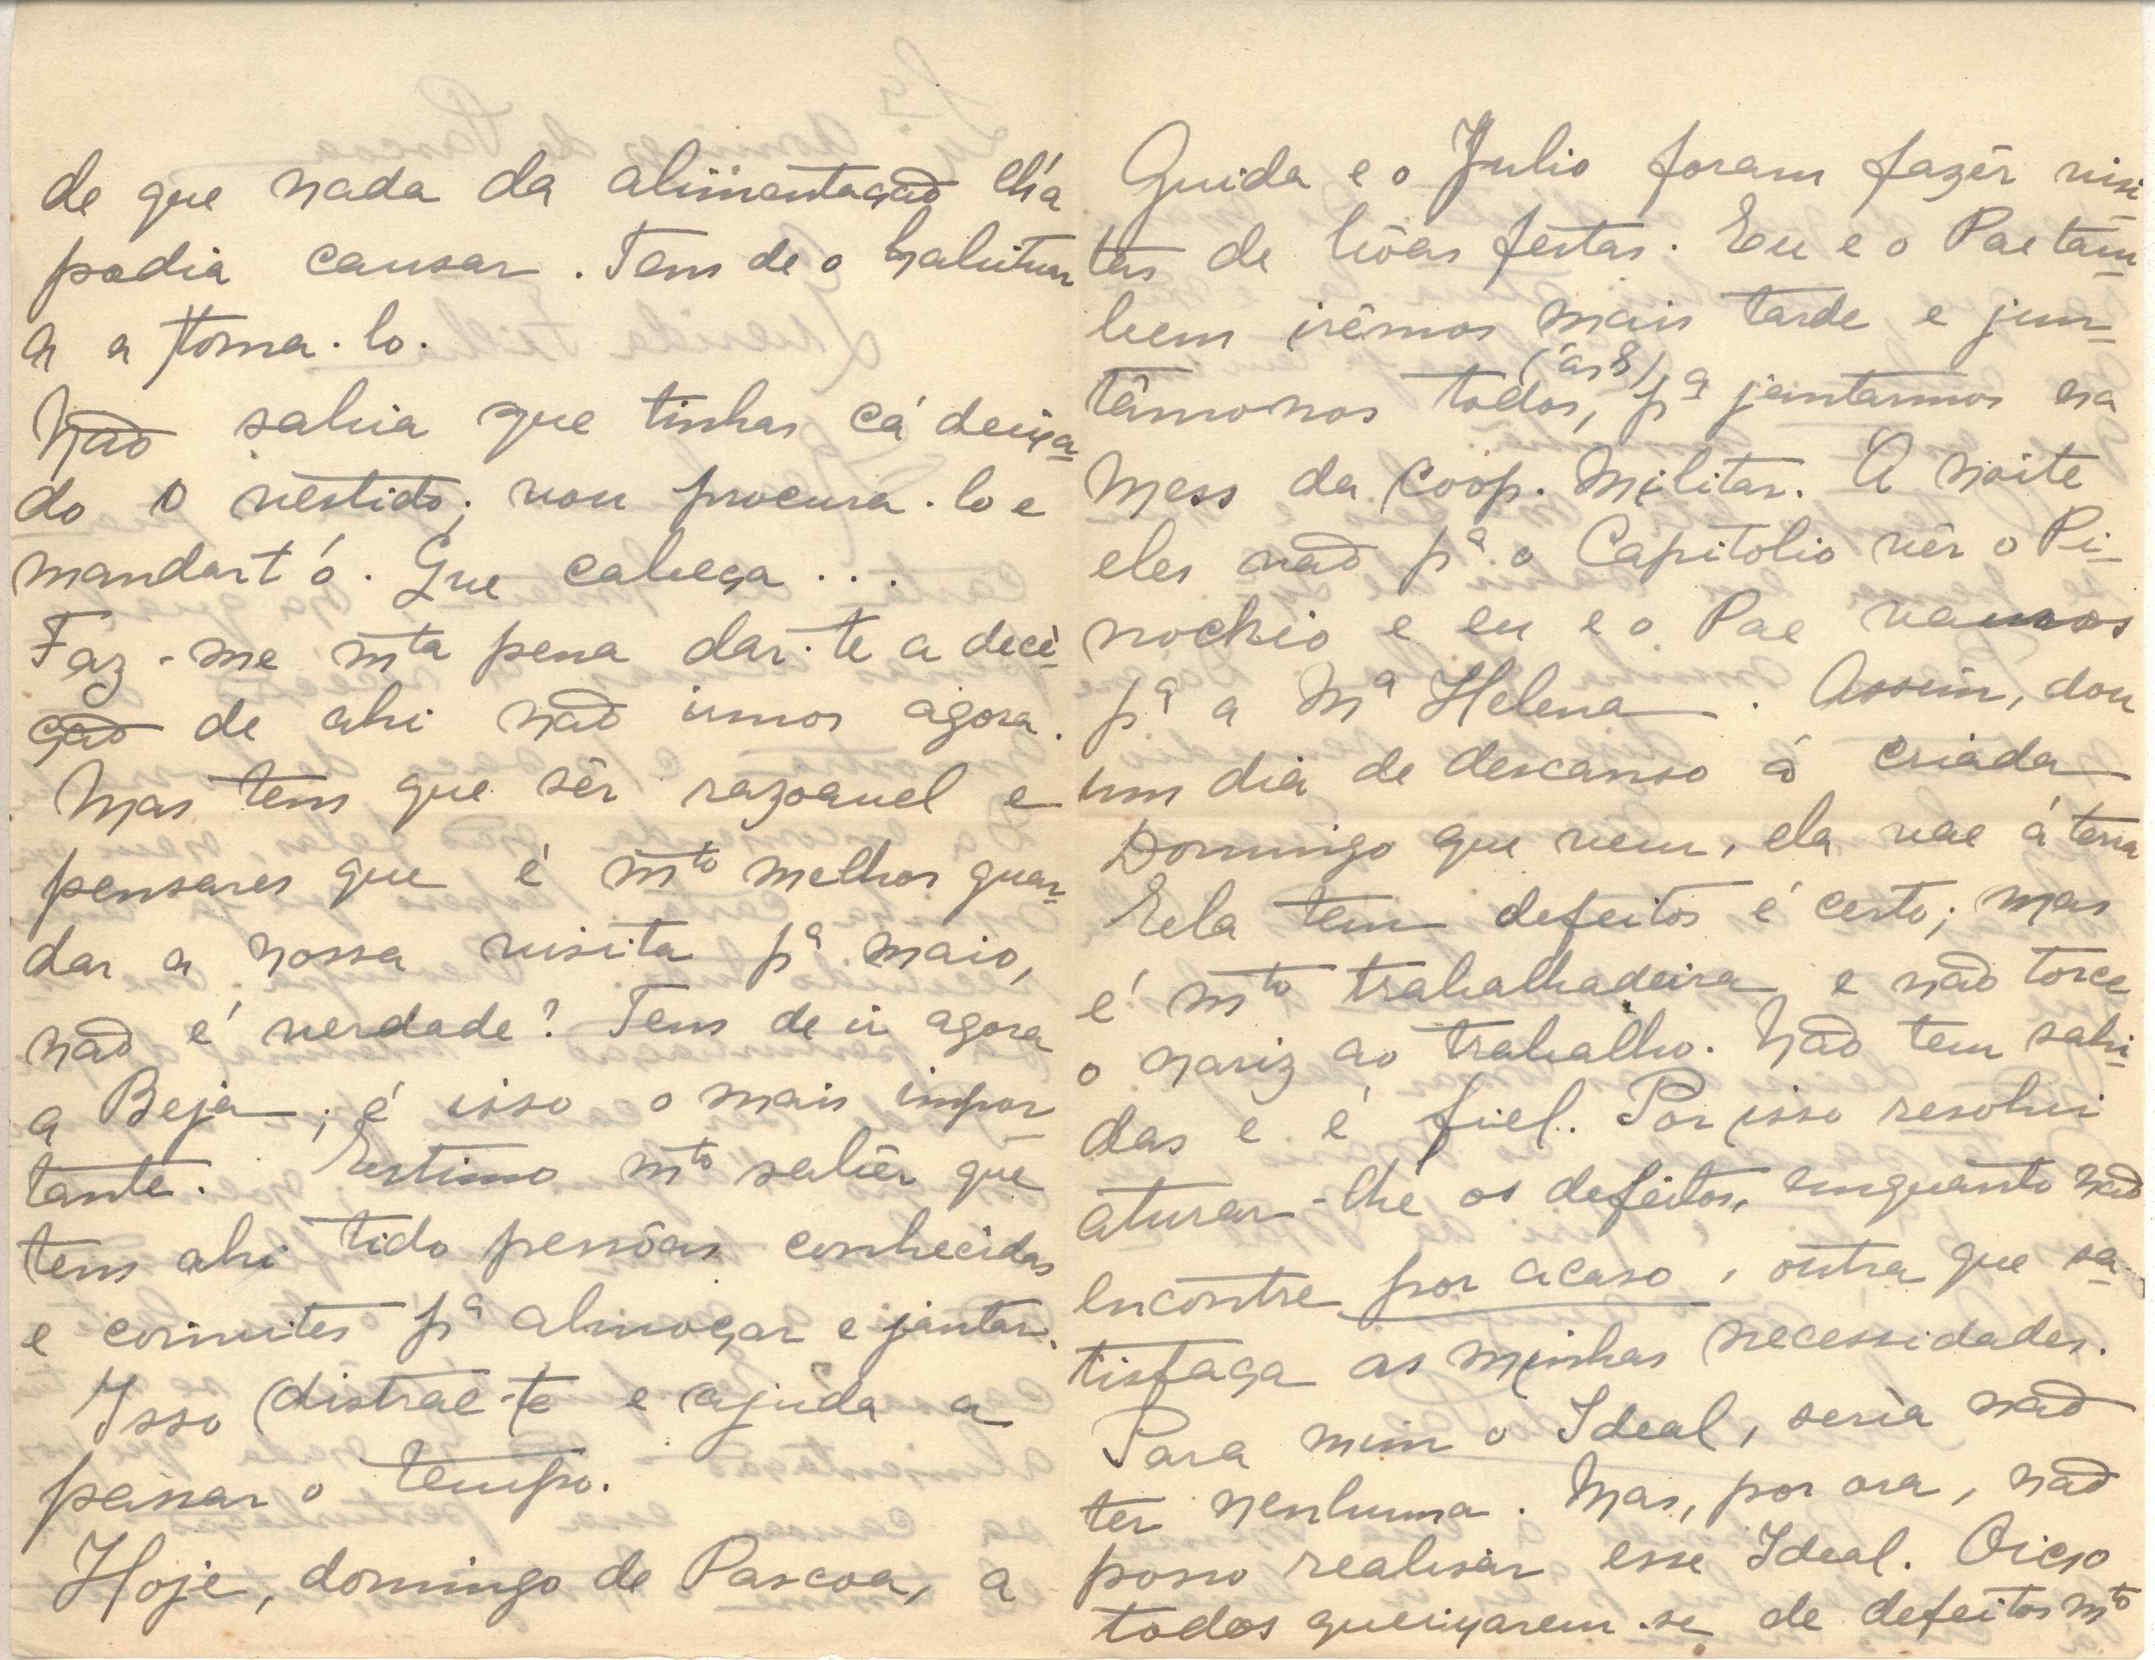 de que nada da alimentação lh'a
podia causar. Tens de o habituar
a toma-lo.
Não sabia que tinhas cá deixa-
do o vestido; vou procura-lo e
mandart'ó. Que cabeça...
Faz-me mta pena dar-te a dece-
ção de ahi não irmos agora.
Mas tens que sêr razoavel e
pensares que é mto melhor guar-
dar a nossa visita pa maio,
não é verdade? Tens de ir agora
a Beja; é isso o mais impor-
tante. Estimo mto sabêr que
tens ahi tido pessôas conhecidas
e convites pa almoçar e jantar.
Isso distrae-te e ajuda a
passar o tempo.
Hoje, domingo de Pascoa, a
Guida e o Julio foram fazêr visi-
tas de bôas festas. Eu e o Pae tam-
bem irêmos mais tarde e jun-
tâmonos todos, (ás 8) pa jantarmos na
Mess da Coop. Militar. Á noite
eles vão pa o Capitolio vêr o Pi-
nochio e eu e o Pae vamos
pa a Ma Helena. Assim, dou
um dia de descanso á criada
Domingo que vem, ela vae á terra
Ela tem defeitos é certo; mas
é mto trabalhadeira e não torce
o nariz ao trabalho. Não tem sahi-
das e é fiel. Por isso resolvi
aturar-lhe os defeitos, emquanto não
encontre por acaso, outra que sa-
tisfaça as minhas necessidades.
Para mim o Ideal, seria não
ter nenhuma. Mas, por ora, não
posso realisar esse Ideal. Oiço
todos queixarem-se de defeitos mto